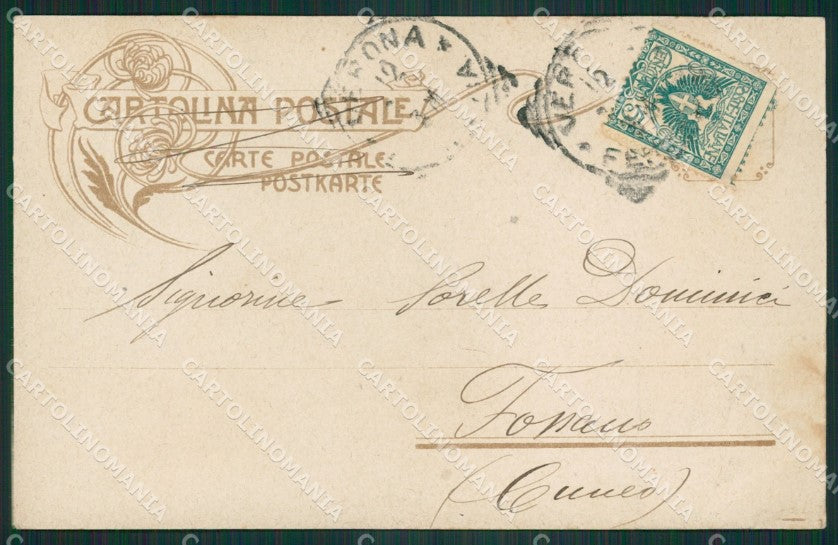 CARTOLINA POSTALE
CARTE POSTALE
POSTKARTE
VERONA
Signorine Sorelle Dominici
Fossano
(Cuneo)
CARTOLINOMANIA